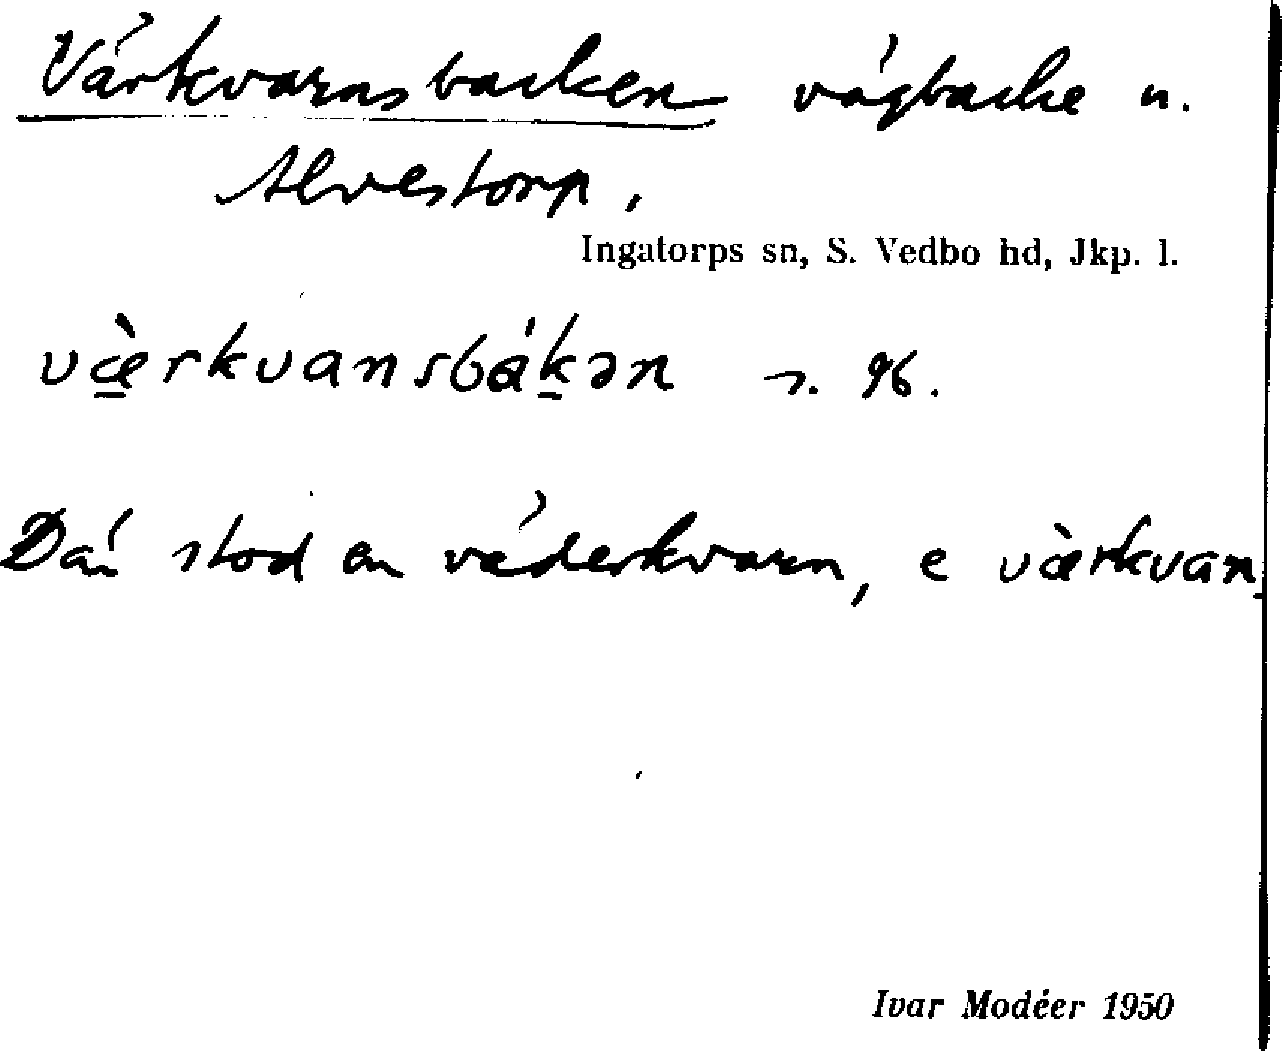 Värkvarnsbacken vägbacke n.
Alvestorp,
Ingatorps sn, S. Vedbo hd, Jkp. l.
væ̀rkvansbákən s. 96.
Där stod en väderkvarn, e væ̀rkvan
Ivar Modéer 1950